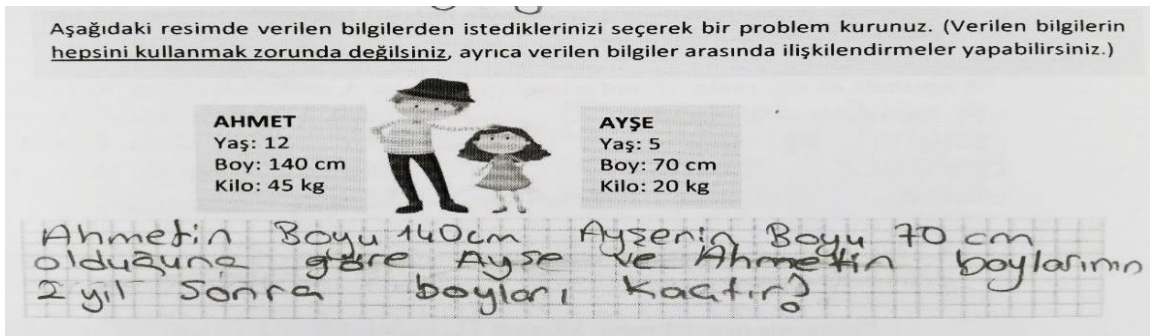 Aşağıdaki resimde verilen bilgilerden istediklerinizi seçerek bir problem kurunuz. (Verilen bilgilerin
hepsini kullanmak zorunda değilsiniz, ayrıca verilen bilgiler arasında ilişkilendirmeler yapabilirsiniz.)
AHMET
Yaş: 12
Boy: 140 cm
Kilo: 45 kg
AYŞE
Yaş: 5
Boy: 70 cm
Kilo: 20 kg
Ahmetin Boyu 140cm Ayşenin Boyu 70 cm
olduğuna göre Ayşe ve Ahmetin boylarının
2 yıl sonra boyları kaçtır?